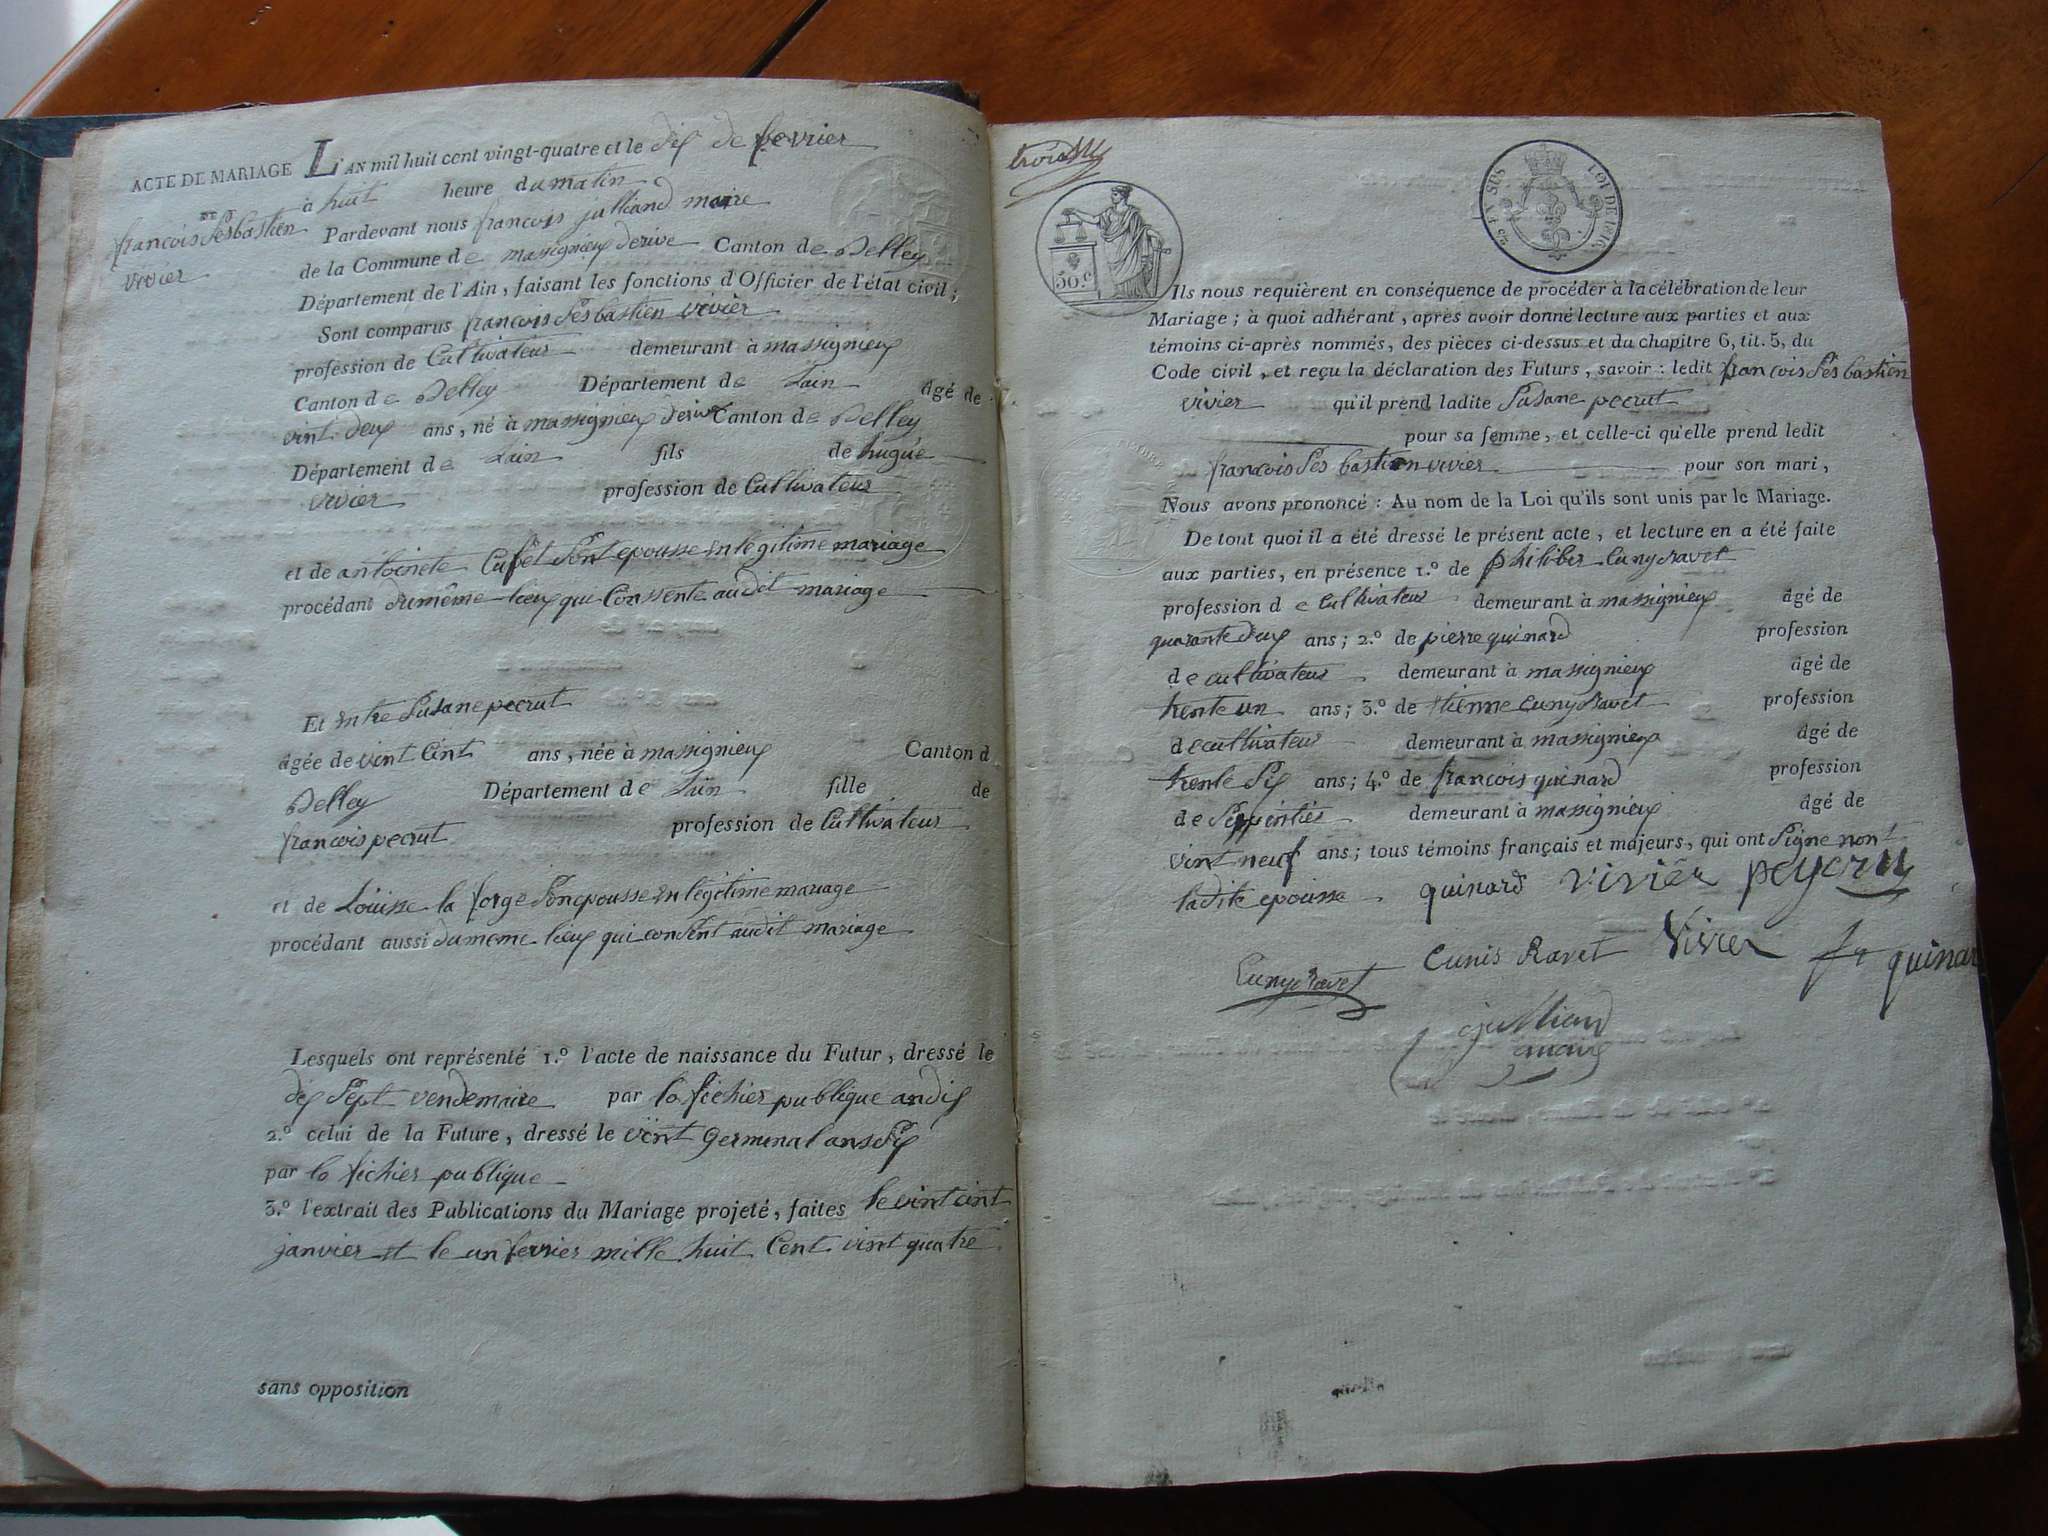 ACTE DE MARIAGE L'AN mil huit cent vingt-quatre et le dix de fevrier
DE
françois Sesbastien
vivier
à huit heure du matin
Pardevant nous françois julliand maire
de la Commune de massignieux derive Canton de Belley
Département de l'Ain, faisant les fonctions d'Officier de l'état civil;
Sont comparus françois Sesbastien vivier
profession de Cultivateur demeurant à massignieux
Canton de Belley Département de Lain âgé de
vint deux ans, né à massignieux derive Canton de Belley
Département de Lain fils de hugue
vivier profession de Cultivateur
et de antoinete Cusset Sont epousse en legitime mariage
procédant du même lieux qui Conssente audit mariage
Et entre Susane pecrut
âgée de vint Cint ans, née à massignieux Canton d
Belley Département de Lain fille de
françois pecrut profession de Cultivateur
et de Louisse la forge Son epousse en legitime mariage
procédant aussi du meme lieux qui consent audit mariage
Lesquels ont représenté 1.º l'acte de naissance du Futur, dressé le
dix Sept vendemaire par lo fichier publique an dix
2.º celui de la Future, dressé le vint germinal an Six
par lo fichier publique
3.º l'extrait des Publications du Mariage projeté, faites le vint cint
janvier et le un fevrier mille huit Cent vint quatre
sans opposition
trois
50.c
Ils nous requièrent en conséquence de procéder à la célébration de leur
Mariage; à quoi adhérant, après avoir donné lecture aux parties et aux
témoins ci-après nommés, des pièces ci-dessus et du chapitre 6, tit. 5, du
Code civil, et reçu la déclaration des Futurs, savoir: ledit françois Sesbastien
vivier qu'il prend ladite Susane pecrut
pour sa femme, et celle-ci qu'elle prend ledit
françois Sesbastien vivier pour son mari,
Nous avons prononcé: Au nom de la Loi qu'ils sont unis par le Mariage.
De tout quoi il a été dressé le présent acte, et lecture en a été faite
aux parties, en présence 1.º de philiber Cuny ravet
profession de Cultivateur demeurant à massignieux âgé de
quarante deux ans; 2.º de pierre quinard profession
de cultivateur demeurant à massignieux âgé de
trente un ans; 3.º de etienne cuny ravet profession
de cultivateur demeurant à massignieux âgé de
trente Six ans; 4.º de françois quinard profession
de demeurant à massignieux âgé de
vint neuf ans; tous témoins français et majeurs, qui ont Signe non
ladite epousse quinard vivier peycru
Cuny ravet Cunis Ravet Vivier fr quinar
julliand
maire